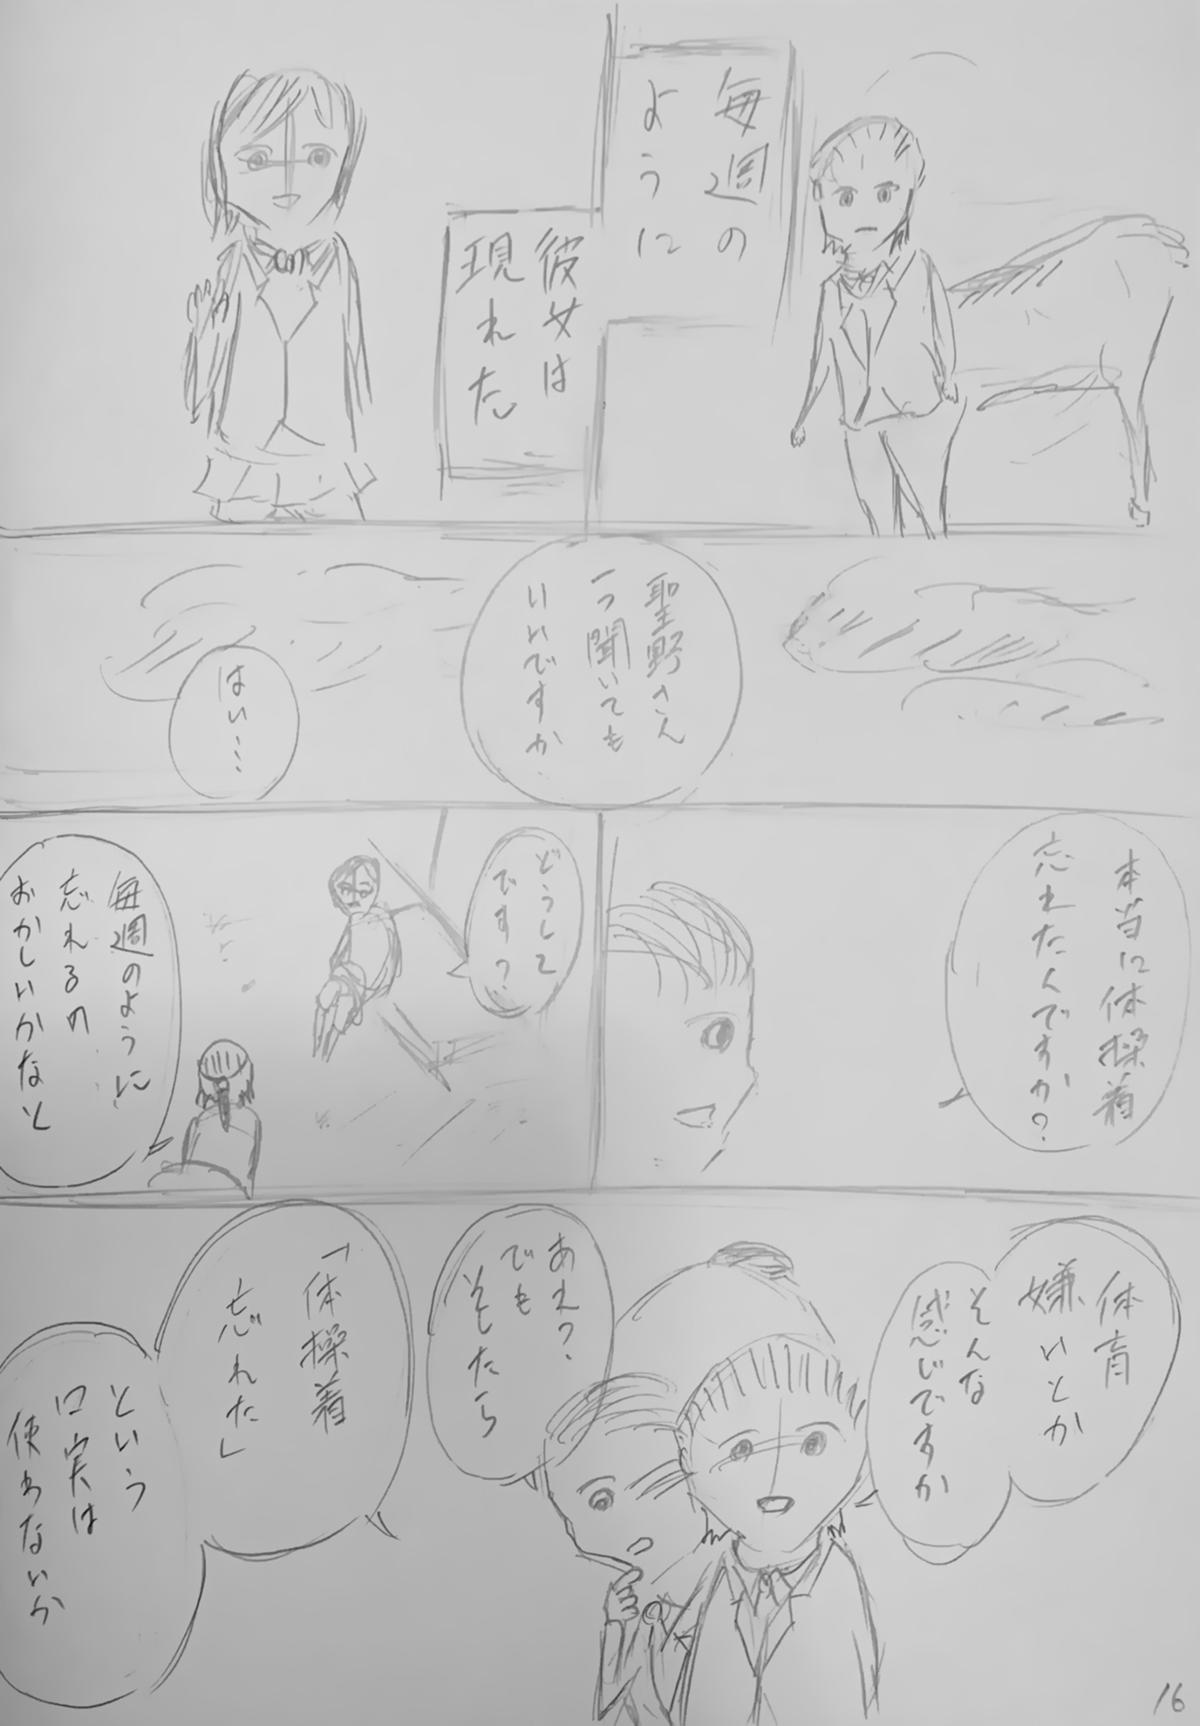 毎週の
ように
彼女は
現れた
聖野さん
一つ聞いても
いいですか
はい…
本当に体操着
忘れたんですか?
どうして
です?
毎週のように
忘れるの
おかしいかなと
体育
嫌いとか
そんな
感じですか
あれ?
でも
そしたら
「体操着
忘れた」
という
口実は
使わないか
16